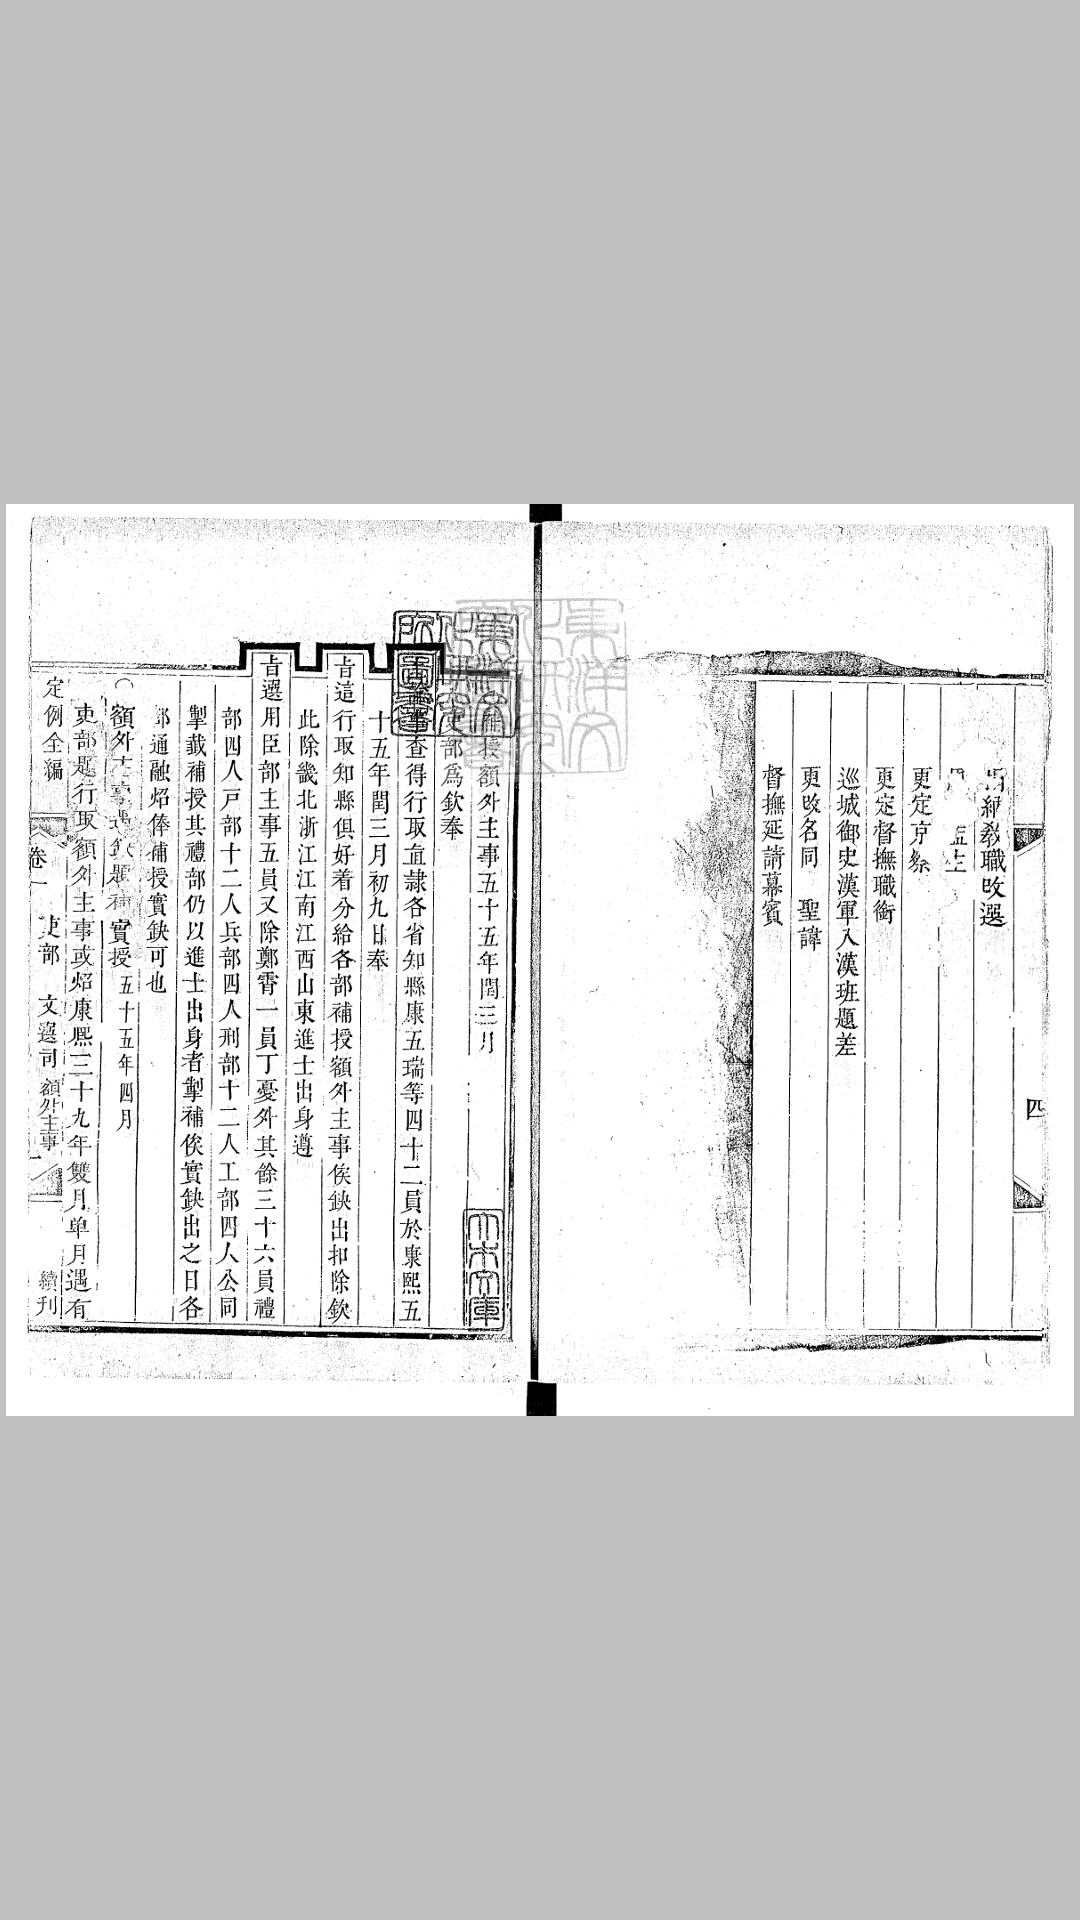 捐納敎職改選
監生
更定京察
更定督撫職銜
巡城御史漢軍入漢班題差
更改名同　聖諱
督撫延請幕賓
四
補授額外主事五十五年閏三月
吏部爲欽奉
上事查得行取直隸各省知縣康五瑞等四十二員於康熙五
十五年閏三月初九日奉
旨這行取知縣俱好着分給各部補授額外主事俟缺出扣除欽
此除畿北浙江江南江西山東進士出身遵
旨選用臣部主事五員又除鄭霄一員丁憂外其餘三十六員禮
部四人戸部十二人兵部四人刑部十二人工部四人公同
掣籤補授其禮部仍以進士出身者掣補俟實缺出之日各
部通融炤俸補授實缺可也
○額外主事遇缺題補實授五十五年四月
吏部題行取額外主事或炤康熙三十九年雙月单月遇有
定例全編
卷一
吏部
文選司
額外主事
一
續刊
大木文庫
東洋文